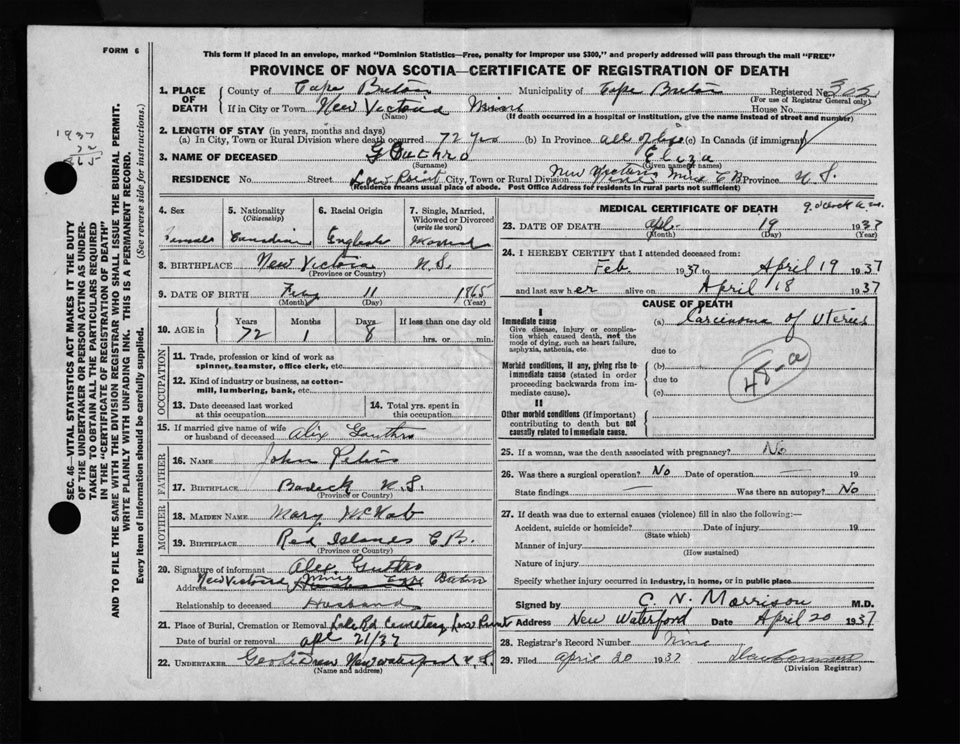 FORM 6
This form if placed in an envelope, marked "Dominion Statistics—Free, penalty for improper use $300," and properly addressed will pass through the mail "FREE"
PROVINCE OF NOVA SCOTIA—CERTIFICATE OF REGISTRATION OF DEATH
1. PLACE OF DEATH
County of Cape Breton Municipality of Cape Breton Registered No.
(For use of Registrar General only)
If in City or Town New Victoria Mines House No.
(Name)
(If death occurred in a hospital or institution, give the name instead of street and number)
2. LENGTH OF STAY (in years, months and days)
(a) In City, Town or Rural Division where death occurred 72 yrs (b) In Province all of life (c) In Canada (if immigrant)
3. NAME OF DECEASED Gouthro Eliza
(Surname) (Given name or names)
RESIDENCE No. Street Low Point City, Town or Rural Division New Victoria Mines C B Province N. S.
(Residence means usual place of abode. Post Office Address for residents in rural parts not sufficient)
4. Sex
Female
5. Nationality
(Citizenship)
Canadian
6. Racial Origin
English
7. Single, Married, Widowed or Divorced
(write the word)
Married
8. BIRTHPLACE New Victoria N. S.
(Province or Country)
9. DATE OF BIRTH 11 1865
(Month) (Day) (Year)
10. AGE in
Years Months Days If less than one day old
72 1 8 hrs. or min.
OCCUPATION
11. Trade, profession or kind of work as spinner, teamster, office clerk, etc.
12. Kind of industry or business, as cotton-mill, lumbering, bank, etc.
13. Date deceased last worked at this occupation
14. Total yrs. spent in this occupation
15. If married give name of wife or husband of deceased Alix Gouthro
FATHER
16. NAME John
17. BIRTHPLACE Badeck N. S.
(Province or Country)
MOTHER
18. MAIDEN NAME Mary McNab
19. BIRTHPLACE Red Islands C B.
(Province or Country)
20. Signature of informant Alex
Address New Victoria Mines Cape Breton
Relationship to deceased Husband
21. Place of Burial, Cremation or Removal Cemetery Low Point
Date of burial or removal Apl 21/37
22. UNDERTAKER New Waterford N. S.
(Name and address)
MEDICAL CERTIFICATE OF DEATH
23. DATE OF DEATH Apl. 19 1937
(Month) (Day) (Year)
24. I HEREBY CERTIFY that I attended deceased from:
Feb. 1937 to April 19 1937
and last saw her alive on April 18 1937
CAUSE OF DEATH
I
Immediate cause
Give disease, injury or complication which caused death, not the mode of dying, such as heart failure, asphyxia, asthenia, etc.
(a) Carcinoma of Uterus
due to
Morbid conditions, if any, giving rise to immediate cause (stated in order proceeding backwards from immediate cause).
(b)
due to
(c)
48-a
II
Other morbid conditions (if important) contributing to death but not causally related to immediate cause.
25. If a woman, was the death associated with pregnancy? No
26. Was there a surgical operation? No Date of operation — 19
State findings — Was there an autopsy? No
27. If death was due to external causes (violence) fill in also the following:—
Accident, suicide or homicide? Date of injury 19
(State which)
Manner of injury
(How sustained)
Nature of injury
Specify whether injury occurred in industry, in home, or in public place
Signed by C. N. Morrison M.D.
Address New Waterford Date April 20 1937
28. Registrar's Record Number Nine
29. Filed April 20 1937
(Division Registrar)
SEC. 46—VITAL STATISTICS ACT MAKES IT THE DUTY
OF THE UNDERTAKER OR PERSON ACTING AS UNDERTAKER
TO OBTAIN ALL THE PARTICULARS REQUIRED
IN THE "CERTIFICATE OF REGISTRATION OF DEATH"
AND TO FILE THE SAME WITH THE DIVISION REGISTRAR WHO SHALL ISSUE THE BURIAL PERMIT.
WRITE PLAINLY WITH UNFADING INK. THIS IS A PERMANENT RECORD.
Every item of information should be carefully supplied. (See reverse side for instructions.)
1937
72
1865